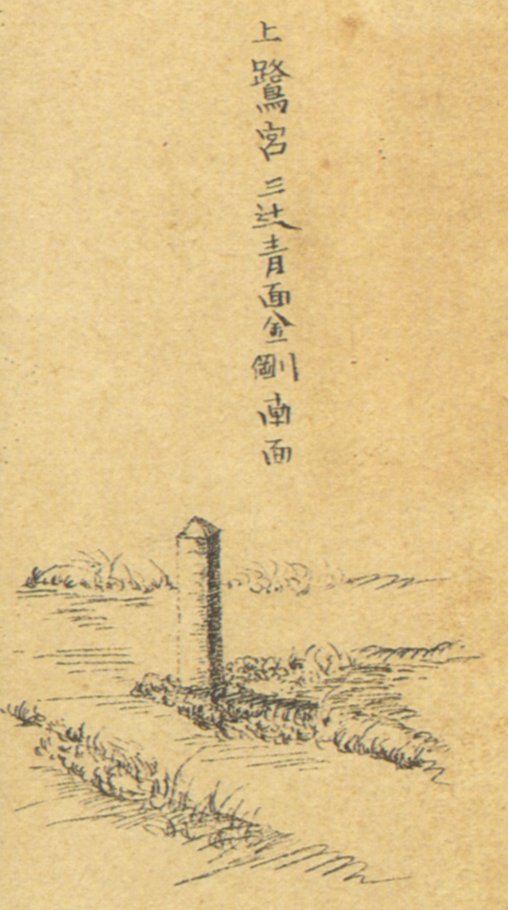 上鷺宮三辻青面金剛南面